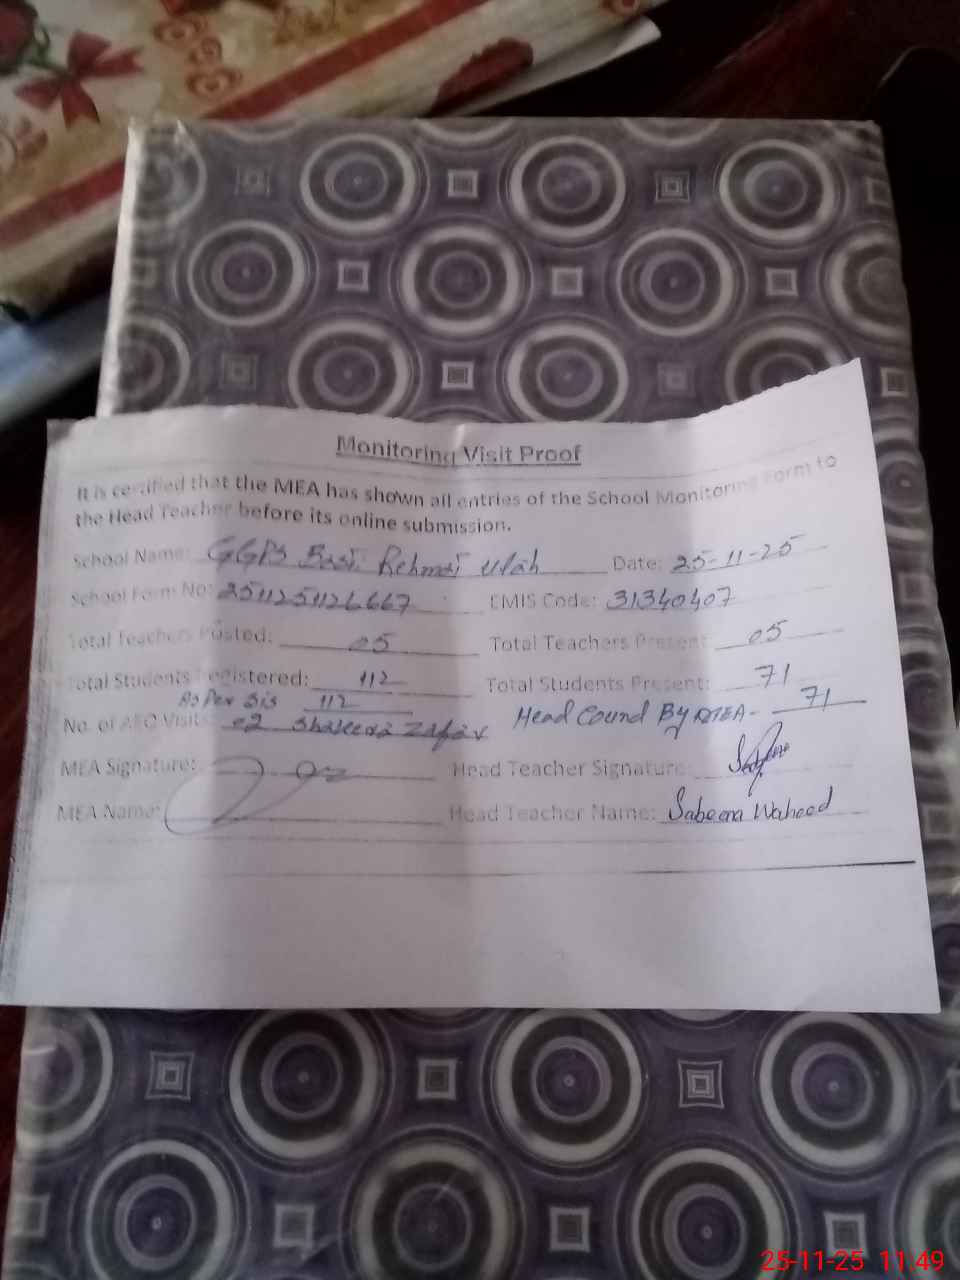 Monitoring Visit Proof
It is certified that the MEA has shown all entries of the School Monitoring Form to
the Head Teacher before its online submission.
School Name: GGPS Basti Rehmat Ulah Date: 25-11-25
School Form No: 251125112 6667 EMIS Code: 31340407
Total Teachers Posted: 05 Total Teachers Present: 05
Total Students Registered: 112 Total Students Present: 71
As Per Sis 112
No. of AEO Visits: 02 Zafar Head Cound By MEA- 71
MEA Signature: Head Teacher Signature:
MEA Name: Head Teacher Name: Sabeena Waheed
25-11-25 11.49